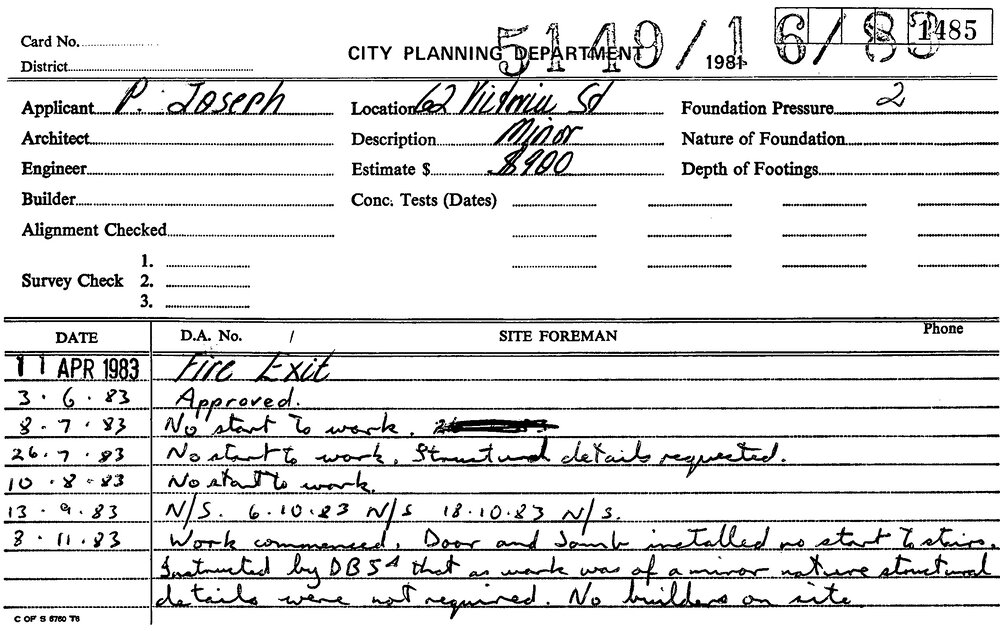 5149/16/83
1485
Card No.
District
CITY PLANNING DEPARTMENT 1981
Applicant P. Joseph Location 62 Victoria St Foundation Pressure 2
Architect Description Minor Nature of Foundation
Engineer Estimate $ $900 Depth of Footings
Builder Conc. Tests (Dates)
Alignment Checked
1.
Survey Check 2.
3.
DATE D.A. No. / SITE FOREMAN Phone
11 APR 1983 Fire Exit
3 . 6 . 83 Approved.
8 . 7 . 83 No start to work.
26 . 7 . 83 No start to work. Structural details requested.
10 . 8 . 83 No start to work.
13 . 9 . 83 N/S. 6.10.83 N/S 18.10.83 N/S.
8 . 11 . 83 Work commenced. Door and Jamb installed no start to stairs.
Instructed by DBSA that as work was of a minor nature structural
details were not required. No builders on site
C OF S 5760 T6